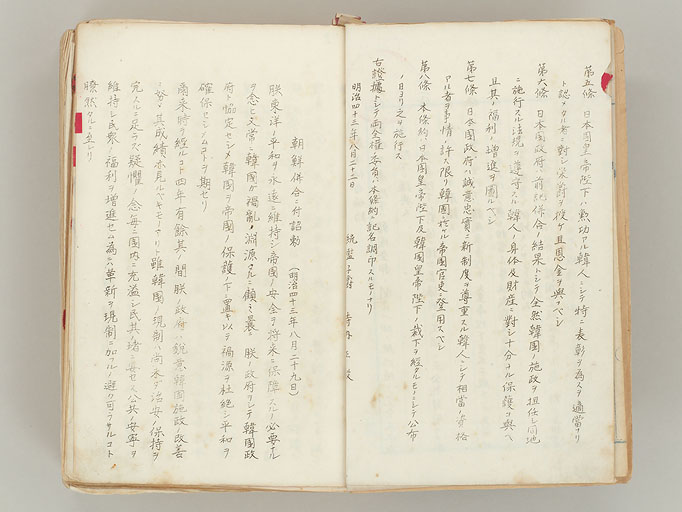 第五條 日本國皇帝陛下ハ勲功アル韓人ニシテ特ニ表彰ヲ為スヲ適當ナリ
ト認メタル者ニ對シ榮爵ヲ授ケ且恩金ヲ與フベシ
第六條 日本國政府ハ前記併合ノ結果トシテ全然韓國ノ施政ヲ担任シ同地
ニ施行スル法規ヲ遵守スル韓人ノ身体及財産ニ對シ十分ナル保護ヲ與ヘ
且其ノ福利ノ増進ヲ圖ルベシ
第七條 日本國政府ハ誠意忠實ニ新制度ヲ尊重スル韓人ニシテ相當ノ資格
アル者ヲ事情ノ許ス限リ韓國ニ於ケル帝國官吏ニ登用スベシ
第八條 本條約ハ日本國皇帝陛下及韓國皇帝陛下ノ裁可ヲ経タルモノニシテ公布
ノ日ヨリ之ヲ施行ス
右證據トシテ両全權委員ハ本條約ニ記名調印スルモノナリ
明治四十三年八月二十二日
統監子爵 寺内正毅
朝鮮併合ニ付詔勅 (明治四十三年八月二十九日)
朕東洋ノ平和ヲ永遠ニ維持シ帝國ノ安全ヲ將来ニ保障スルノ必要ナル
ヲ念ヒ又常ニ韓國ガ禍亂ノ淵源タルニ顧ミ曩ニ朕ノ政府ヲシテ韓國政
府ト協定セシメ韓國ヲ帝國ノ保護ノ下ニ置キ以テ禍源ヲ杜絶シ平和ヲ
確保センコトヲ期セリ
爾来時ヲ経ルコト四年有餘其ノ間朕ノ政府ハ鋭意韓國施政ノ改善
ニ努メ其成績亦見ルベキモノアリト雖韓國ノ現制ハ尚未ダ治安ノ保持ヲ
完スルニ足ラズ疑懼ノ念毎ニ國内ニ充溢シ民其ノ堵ニ安セス公共ノ安寧ヲ
維持シ民衆ノ福利ヲ増進セムガ為ニハ革新ヲ現制ニ加フルノ避ク可ラサルコト
瞭然タルニ至レリ